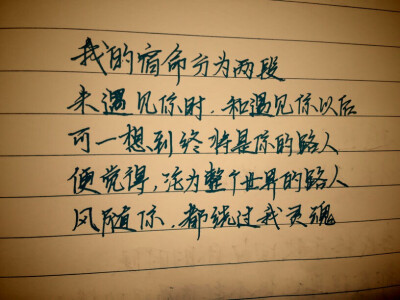 我的宿命分为两段
未遇见你时，和遇见你以后
可一想到终将是你的路人
便觉得，沦为整个世界的路人
风随你，都绕过我灵魂